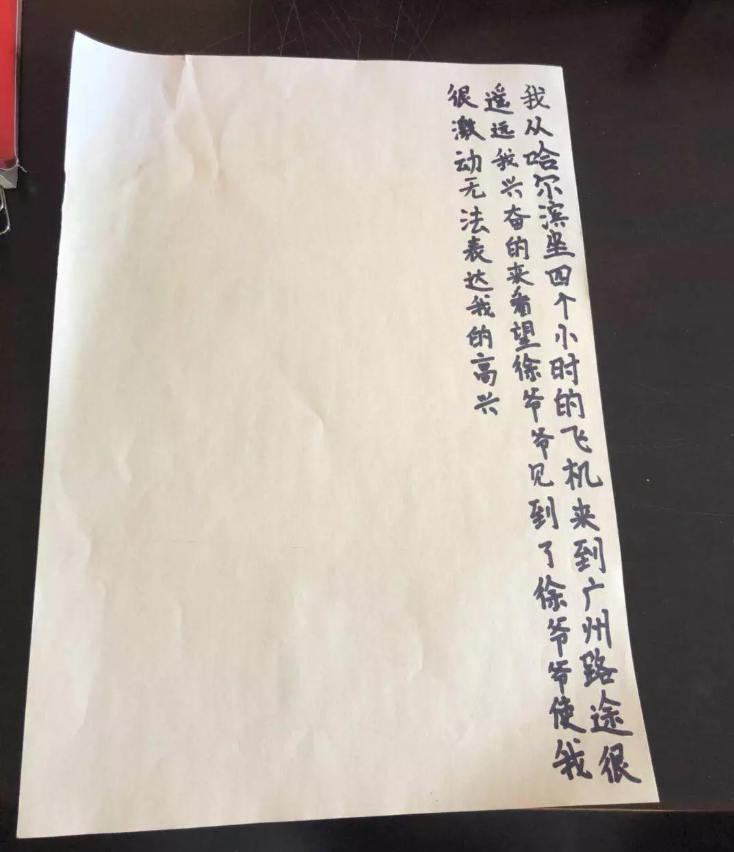 我从哈尔滨坐四个小时的飞机来到广州路途很
遥远我兴奋的来看望徐爷爷见到了徐爷爷使我
很激动无法表达我的高兴